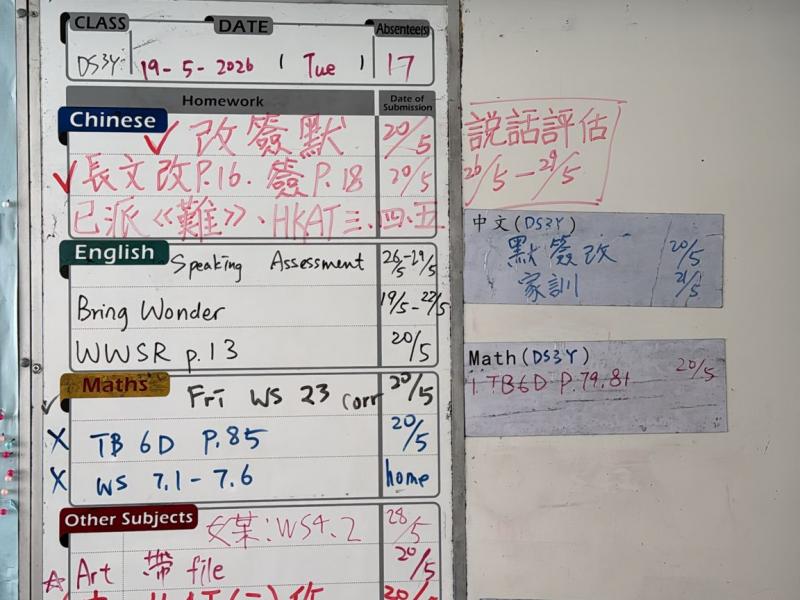 CLASS DATE Absentee(s)
DS3Y 19-5-2026 ( Tue ) 17
Homework Date of Submission
Chinese ✓ 改簽默 20/5
✓ 長文改P.16. 簽P.18 20/5
已派《難》、HKAT三、四、五
English Speaking Assessment 26/5-29/5
Bring Wonder 19/5-22/5
WWSR p.13 20/5
Maths Fri WS 23 corr 20/5
✓
X TB 6D P.85 20/5
X WS 7.1-7.6 home
Other Subjects WS4.2 28/5
☆ Art 帶 file 20/5
20/5
說話評估
26/5-29/5
中文(DS3Y)
默簽改 20/5
家訓 21/5
Math(DS3Y)
1 TB6D P.79.81 20/5